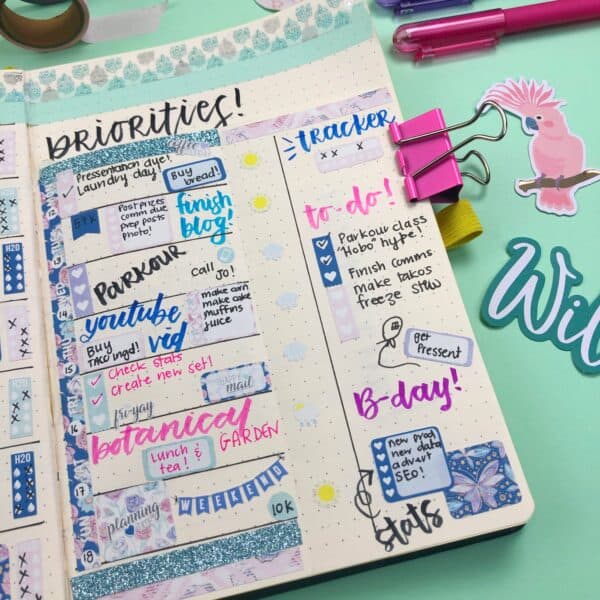 PRIORITIES!
Presentation due!
Laundry day!
Buy
bread!
5k
Post prizes
comm due
prep posts
photo!
finish
blog!
PARKOUR
Call Jo!
youtube
vid
Buy
Taco ingd!
make corn
make cake
muffins
juice
15
Check stats
create new set!
fri-yay
HAPPY
mail
16
botanical
GARDEN
Lunch &
tea!
17
planning
WEEKEND
10K
18
H2O
H2O
tracker
x x x
to-do!
Parkour class
"Hobo" hype!
Finish comms
make takos
freeze stew
get
Pressent
B-day!
new prod
new data
advert
SEO!
stats
Wil